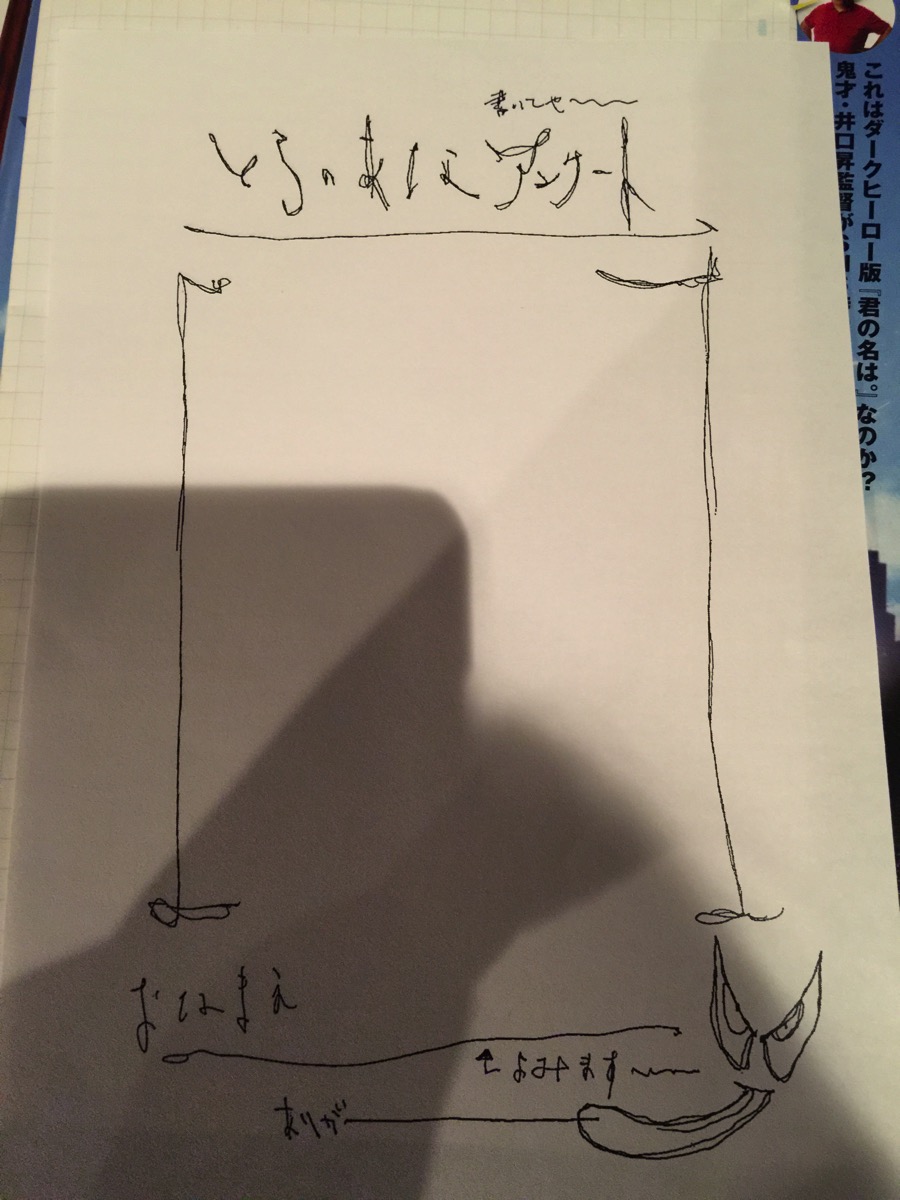 書いてや〜〜
とらのあなアンケート
おなまえ
よみます〜〜
ありがー
これはダークヒーロー版『君の名は。』なのか?
鬼才・井口昇監督が